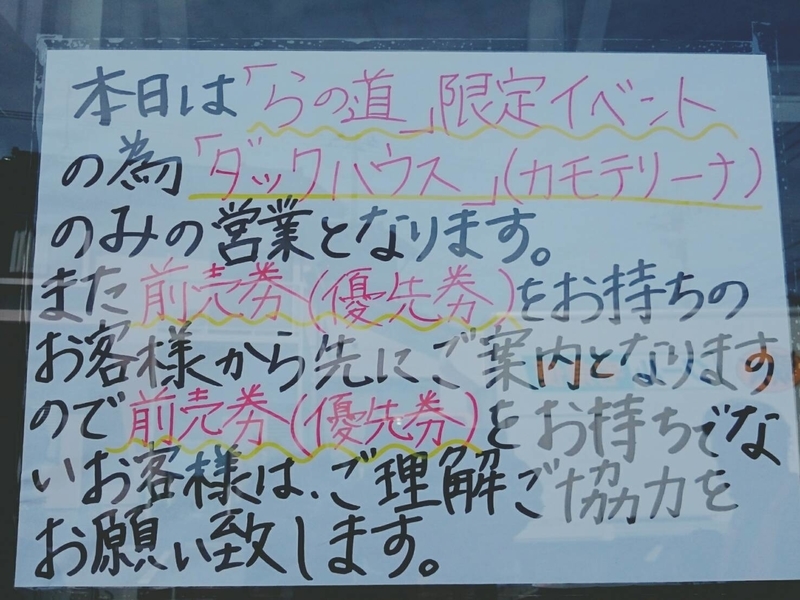 本日は「らの道」限定イベント
の為「ダックハウス」(カモテリーナ)
のみの営業となります。
また前売券(優先券)をお持ちの
お客様から先にご案内となります
ので前売券(優先券)をお持ちでな
いお客様は、ご理解ご協力を
お願い致します。